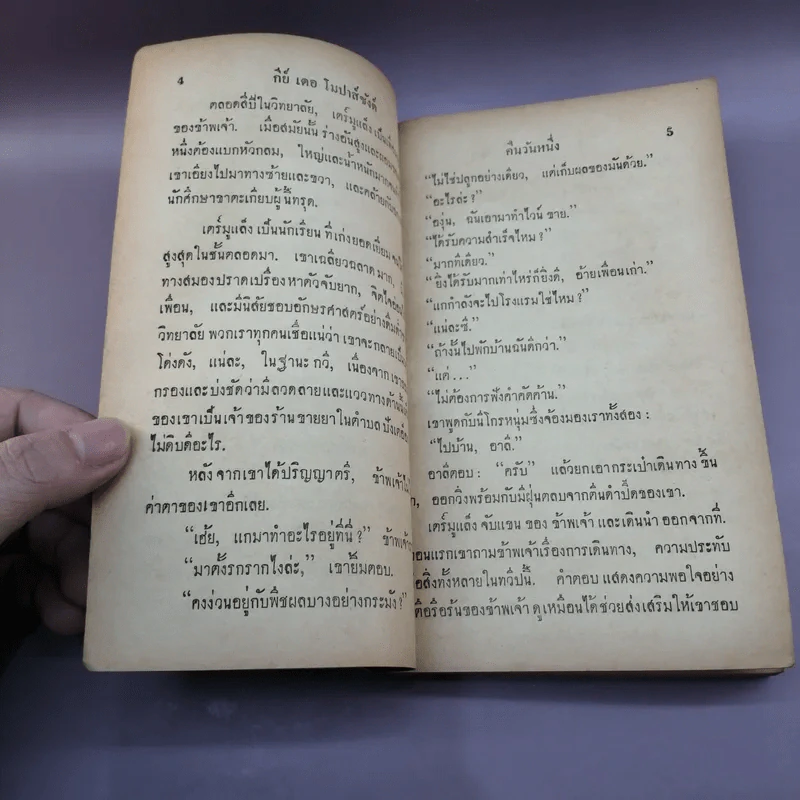 4 กีย์ เดอ โมปาส์ซังต์
ตลอดสี่ปีในวิทยาลัย, เตร์มูแล็ง เป็น
ของข้าพเจ้า. เมื่อสมัยนั้น ร่างอันสูงและ
หนึ่งต้องแบกหัวกลม, ใหญ่และน้ำหนักมาก
เขาเอียงไปมาทางซ้ายและขวา, และคล้าย
นักศึกษาขาตะเกียบผู้นี้ทรุด.
เตร์มูแล็ง เป็นนักเรียน ที่เก่งยอดเยี่ยม
สูงสุดในชั้นตลอดมา. เขาเฉลียวฉลาด มาก,
ทางสมองปราดเปรื่อง หาตัวจับยาก, จิตใจ
เพื่อน, และมีนิสัยชอบอักษรศาสตร์อย่างดื่มด่ำ
วิทยาลัย พวกเราทุกคนเชื่อแน่ว่า เขาจะกลายเป็น
โด่งดัง, แน่ละ, ในฐานะ กวี, เนื่องจาก เขา
กรองและบ่งชัดว่ามีลวดลายและแววทางด้าน
ของเขาเป็นเจ้า ของร้าน ขายยาในตำบล
ไม่ดิบดีอะไร.
หลัง จากเขาได้ปริญญาตรี, ข้าพเจ้า
ค่าตาของเขาอีกเลย.
“เฮ้ย, แกมาทำอะไรอยู่ที่นี่ ?” ข้าพเจ้า
“มาตั้งรกรากไงล่ะ,” เขายิ้มตอบ.
“คงง่วนอยู่กับพืชผลบางอย่างกระมัง ?”
คืนวันหนึ่ง 5
“ไม่ใช่ปลูกอย่างเดียว, แต่เก็บผลของมันด้วย.”
“อะไรล่ะ ?”
“องุ่น, ฉันเอามาทำไวน์ ขาย.”
“ได้รับความสำเร็จไหม ?”
“มากทีเดียว.”
“ยิ่งได้รับมากเท่าไหร่ก็ยิ่งดี, อ้ายเพื่อนเก่า.”
“แกกำลังจะไปโรงแรมใช่ไหม ?”
“แน่ละซี.”
“ถ้างั้นไปพักบ้านฉันดีกว่า.”
“แต่ . . .”
“ไม่ต้องการฟังคำคัดค้าน.”
เขาพูดกับนิโกรหนุ่มซึ่งจ้องมองเราทั้งสอง :
“ไปบ้าน, อาลี.”
อาลีตอบ : “ครับ” แล้วยกเอา กระเป๋าเดินทาง ขึ้น
, ออกวิ่งพร้อมกับมีฝุ่นตลบจากตีนดำปี๋ดของเขา.
เตร์มูแล็ง จับแขน ของ ข้าพเจ้า และเดินนำ ออกจากที่.
ตอนแรกเขาถามข้าพเจ้าเรื่องการเดินทาง, ความประทับ
สิ่งทั้งหลายในทวีปนี้. คำตอบ แสดงความพอใจอย่าง
รือร้นของข้าพเจ้า ดูเหมือนได้ช่วยส่งเสริมให้เขาชอบ